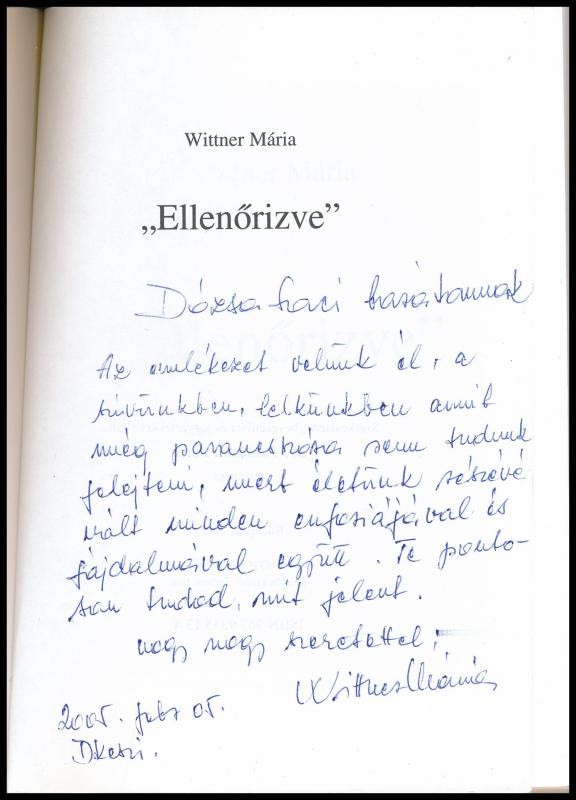 Wittner Mária
„Ellenőrizve”
Dózsa Laci barátomnak
Az emlékezet velünk él, a
szívünkben, lelkünkben amit
még parancsszóra sem tudunk
felejteni, mert életünk részévé
vált minden eufóriájával és
fájdalmával együtt. Te ponto-
san tudod, mit jelent.
nagy nagy szeretettel;
Wittner Mária
2005. febr 05.
Dkeszi.